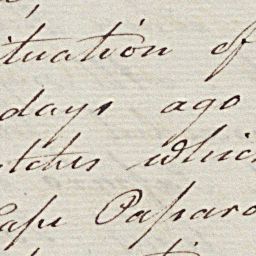 ituation of
days ago
tches whic
Cape Paparo